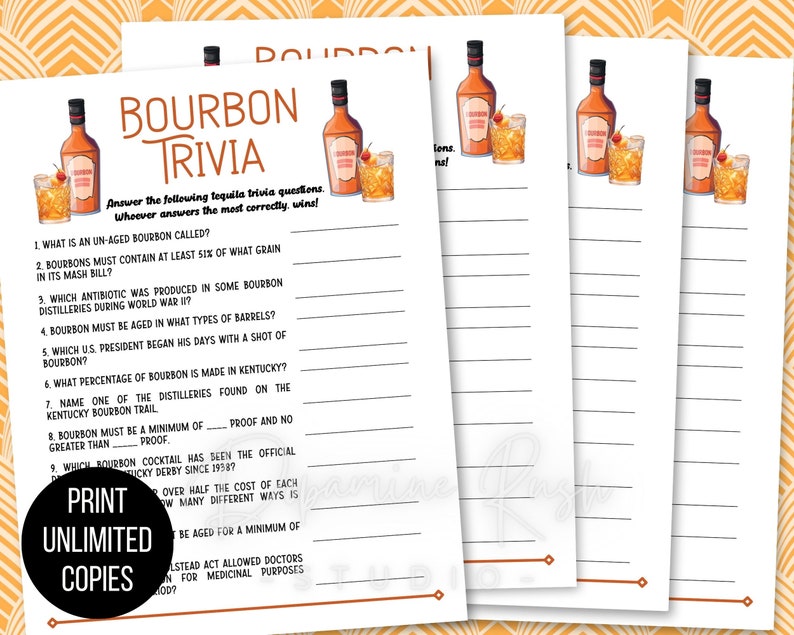 BOURBON
TRIVIA
Answer the following tequila trivia questions.
Whoever answers the most correctly, wins!
1. WHAT IS AN UN-AGED BOURBON CALLED?
2. BOURBONS MUST CONTAIN AT LEAST 51% OF WHAT GRAIN
IN ITS MASH BILL?
3. WHICH ANTIBIOTIC WAS PRODUCED IN SOME BOURBON
DISTILLERIES DURING WORLD WAR II?
4. BOURBON MUST BE AGED IN WHAT TYPES OF BARRELS?
5. WHICH U.S. PRESIDENT BEGAN HIS DAYS WITH A SHOT OF
BOURBON?
6. WHAT PERCENTAGE OF BOURBON IS MADE IN KENTUCKY?
7. NAME ONE OF THE DISTILLERIES FOUND ON THE
KENTUCKY BOURBON TRAIL.
8. BOURBON MUST BE A MINIMUM OF ____ PROOF AND NO
GREATER THAN _____ PROOF.
9. WHICH BOURBON COCKTAIL HAS BEEN THE OFFICIAL
KENTUCKY DERBY SINCE 1938?
OVER HALF THE COST OF EACH
HOW MANY DIFFERENT WAYS IS
BE AGED FOR A MINIMUM OF
ACT ALLOWED DOCTORS
FOR MEDICINAL PURPOSES
PRINT
UNLIMITED
COPIES
BOURBON
BOURBON
BOURBON
BOURBON
wins!
Dopamine Rush
- STUDIO -